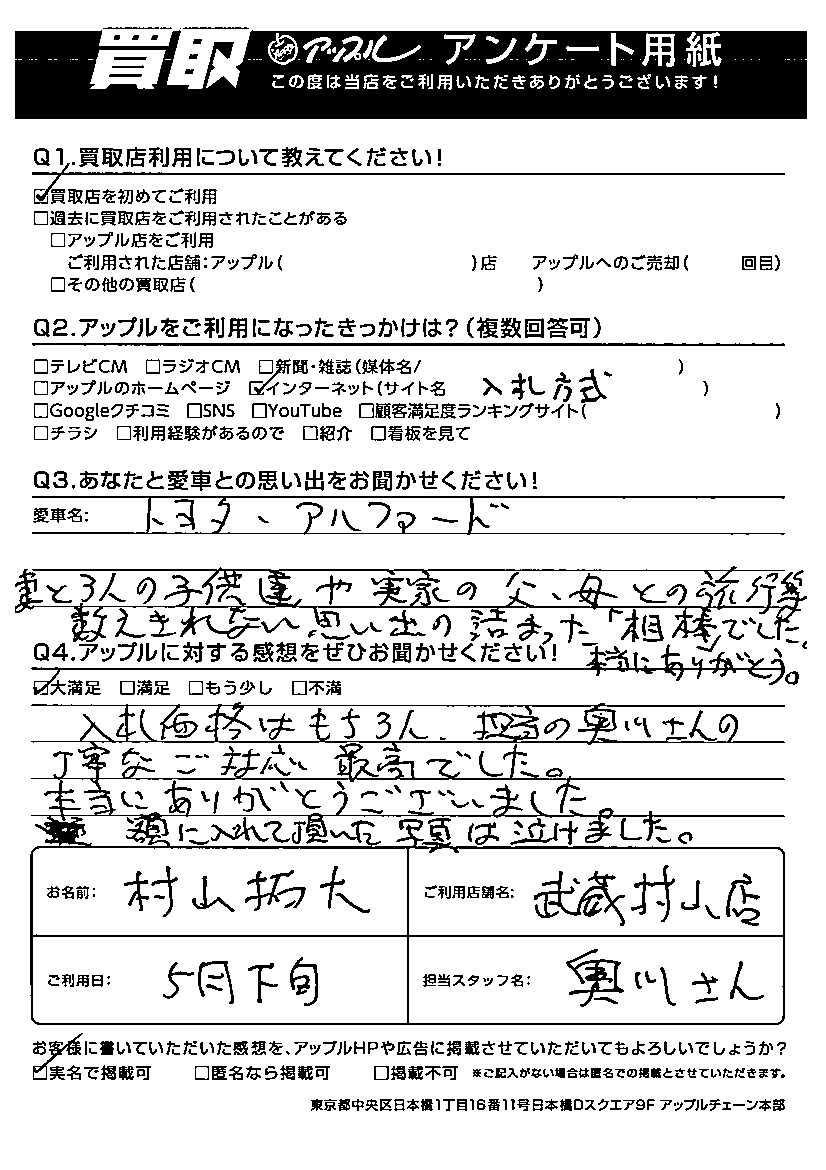 買取 アップル アンケート用紙
この度は当店をご利用いただきありがとうございます!
Q1.買取店利用について教えてください!
☑買取店を初めてご利用
□過去に買取店をご利用されたことがある
□アップル店をご利用
ご利用された店舗:アップル( )店 アップルへのご売却( 回目)
□その他の買取店( )
Q2.アップルをご利用になったきっかけは?(複数回答可)
□テレビCM □ラジオCM □新聞・雑誌(媒体名/ )
□アップルのホームページ ☑インターネット(サイト名 入札方式 )
□Googleクチコミ □SNS □YouTube □顧客満足度ランキングサイト( )
□チラシ □利用経験があるので □紹介 □看板を見て
Q3.あなたと愛車との思い出をお聞かせください!
愛車名: トヨタ、アルファード
妻と3人の子供達や実家の父、母との旅行等
数えきれない思い出の詰まった「相棒」でした。
本当にありがとう。
Q4.アップルに対する感想をぜひお聞かせください!
☑大満足 □満足 □もう少し □不満
入札価格はもちろん、担当の奥川さんの
丁寧なご対応、最高でした。
本当にありがとうございました。
額に入れて頂いた写真は泣けました。
お名前: 村山拓大 ご利用店舗名: 武蔵村山店
ご利用日: 5月下旬 担当スタッフ名: 奥川さん
お客様に書いていただいた感想を、アップルHPや広告に掲載させていただいてもよろしいでしょうか?
☑実名で掲載可 □匿名なら掲載可 □掲載不可 ※ご記入がない場合は匿名での掲載とさせていただきます。
東京都中央区日本橋1丁目16番11号日本橋Dスクエア9F アップルチェーン本部